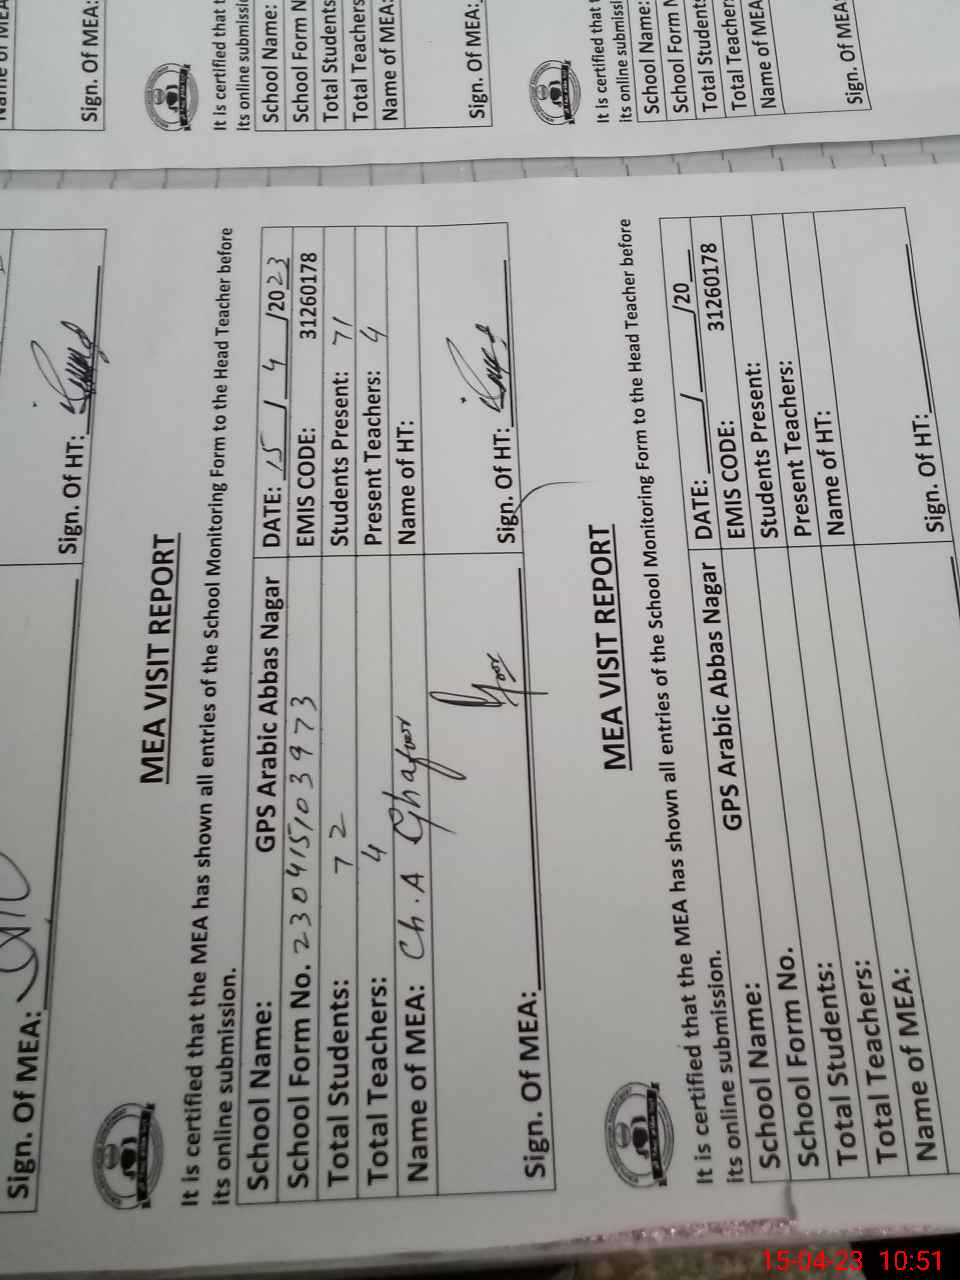 Sign. Of MEA:
Sign. Of HT:
MEA VISIT REPORT
It is certified that the MEA has shown all entries of the School Monitoring Form to the Head Teacher before
its online submission.
School Name: GPS Arabic Abbas Nagar DATE: 15 / 4 /2023
School Form No. 230415103973 EMIS CODE: 31260178
Total Students: 72 Students Present: 71
Total Teachers: 4 Present Teachers: 4
Name of MEA: Ch. A Ghafoor Name of HT:
Sign. Of MEA: Sign. Of HT:
MEA VISIT REPORT
It is certified that the MEA has shown all entries of the School Monitoring Form to the Head Teacher before
its online submission.
School Name: GPS Arabic Abbas Nagar DATE: ___/___/20__
School Form No. EMIS CODE: 31260178
Total Students: Students Present:
Total Teachers: Present Teachers:
Name of MEA: Name of HT:
Sign. Of HT:
Name of MEA:
Sign. Of MEA:
It is certified that
its online
School Name:
School Form
Total Students
Total Teachers
Name of MEA:
Sign. Of MEA:
It is certified that
its online
School Name:
School Form
Total Students
Total Teachers
Name of MEA
Sign. Of MEA:
15-04-23 10:51